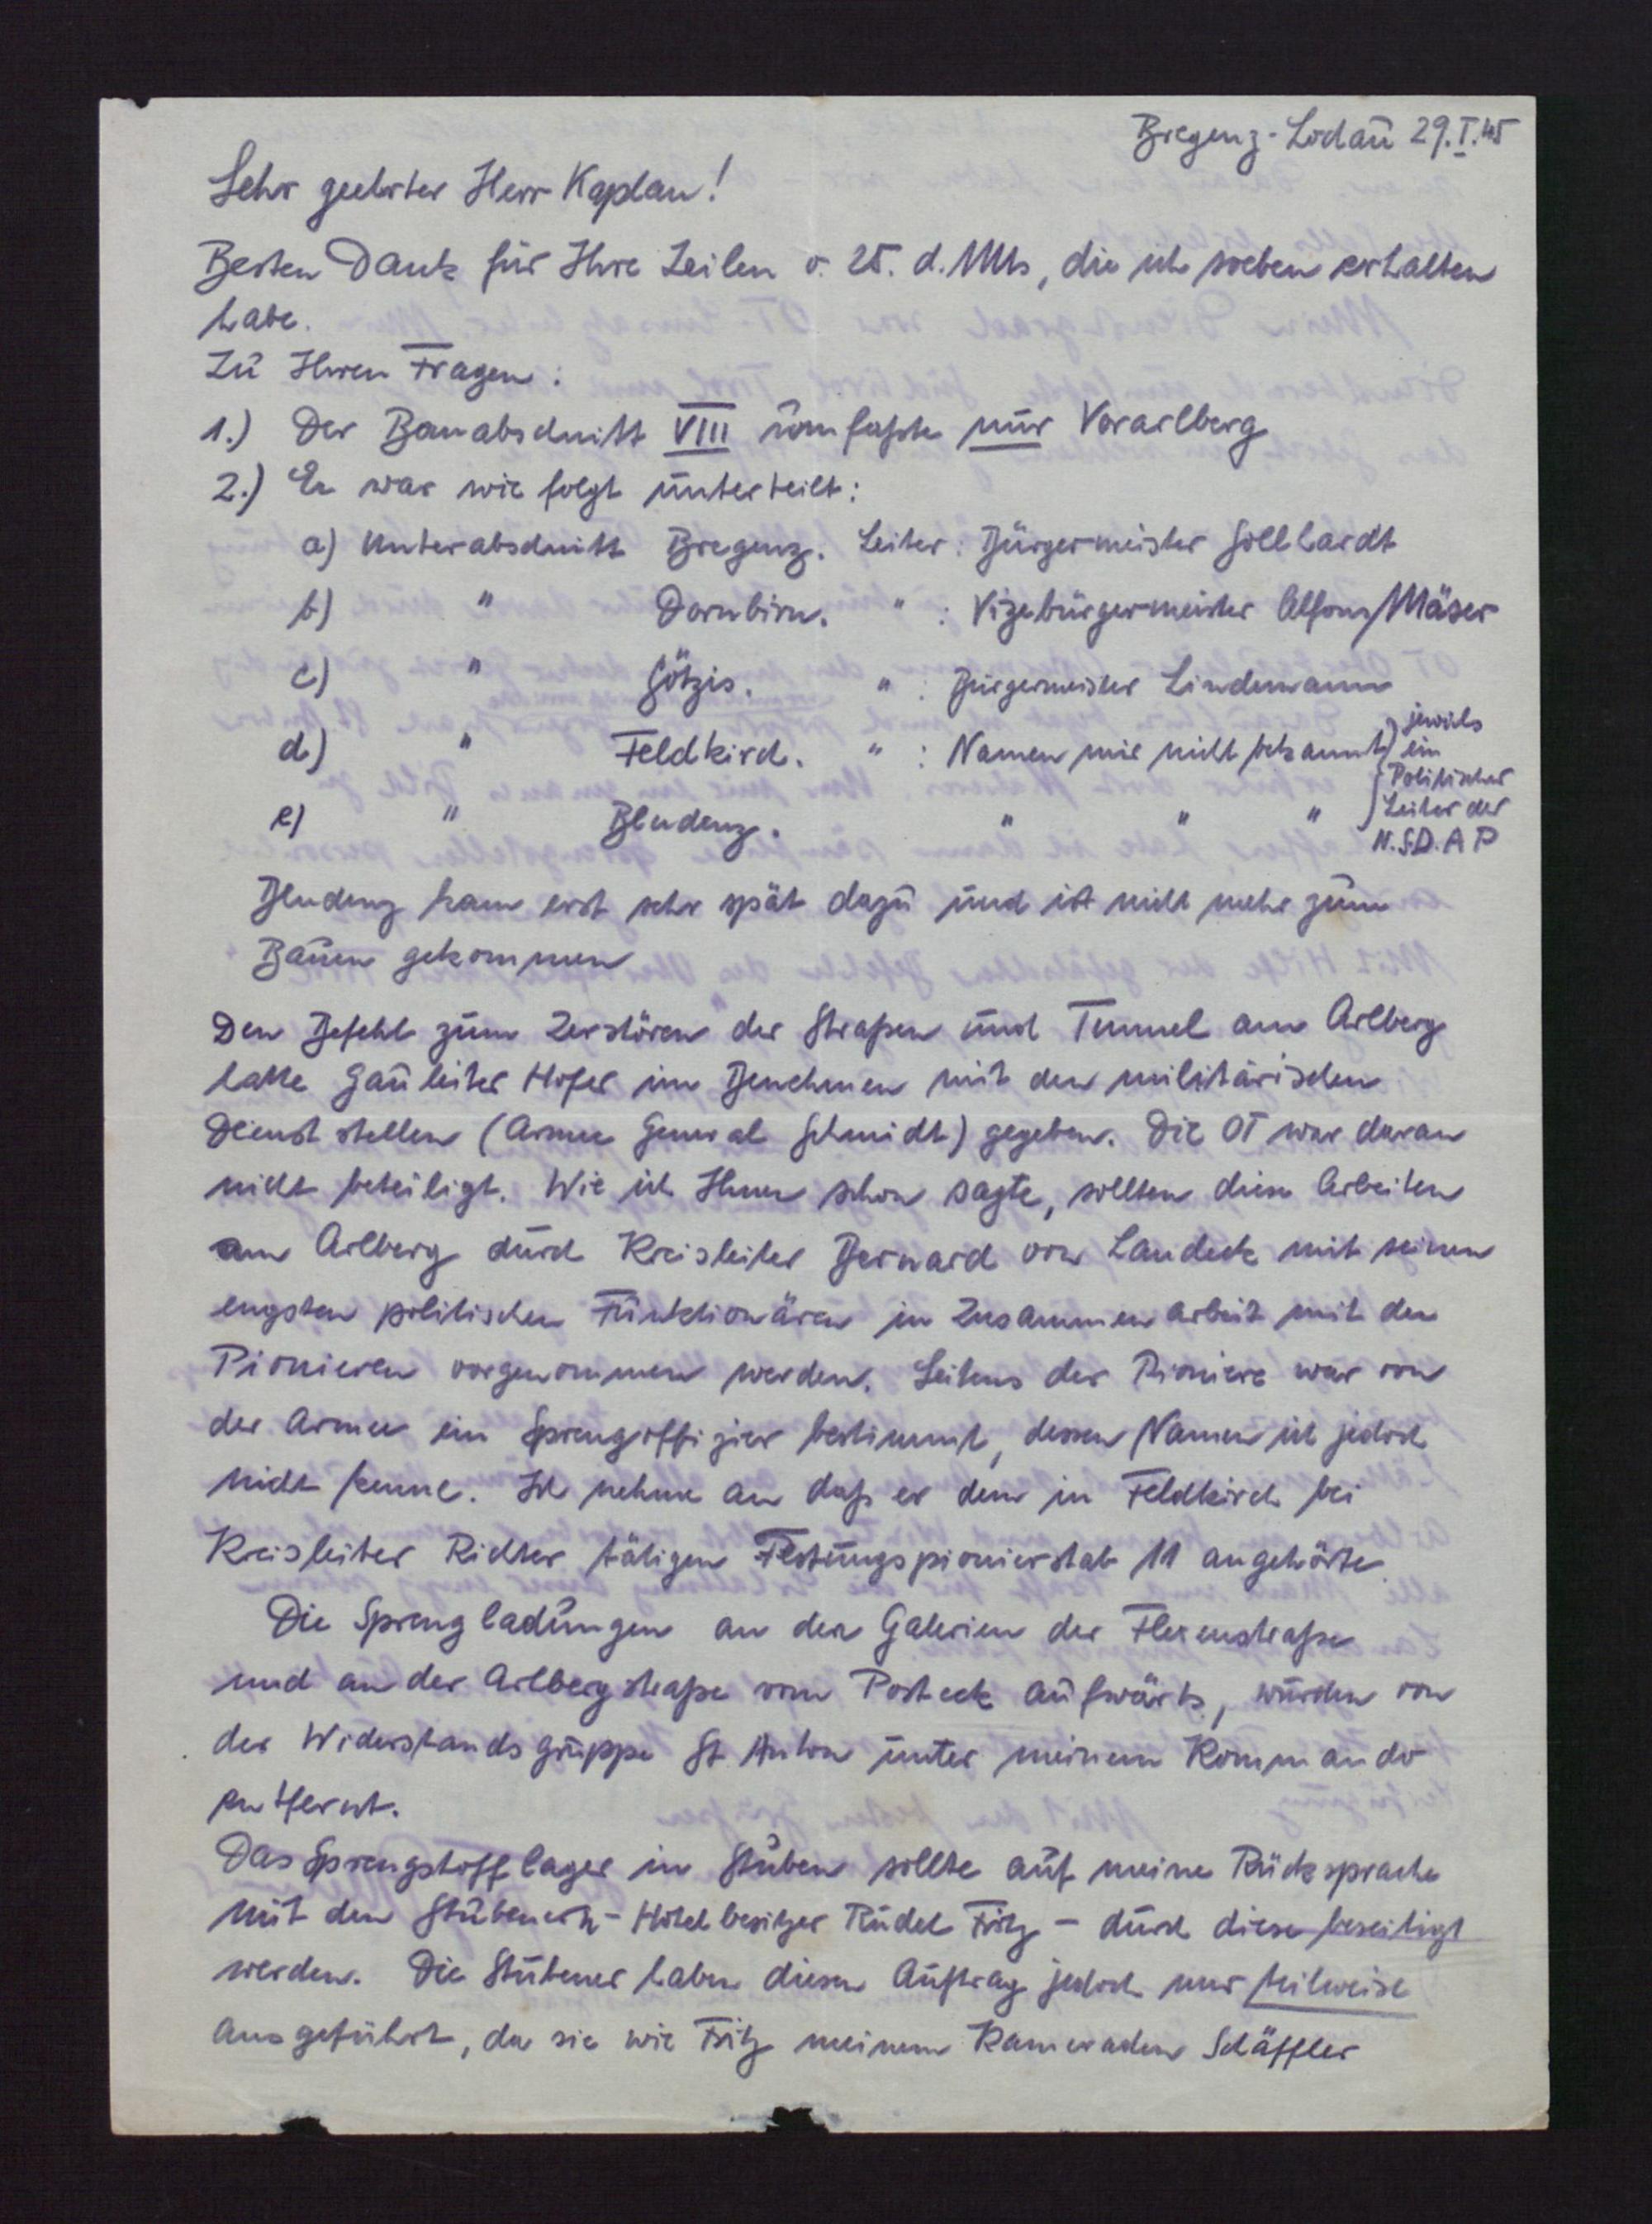 Bregenz-Lochau 29.I.45
Sehr geehrter Herr Kaplan!
Besten Dank für Ihre Zeilen v. 25. d. Mts, die ich soeben erhalten
habe.
Zu Ihren Fragen:
1.) Der Bauabschnitt VIII umfaßte nur Vorarlberg
2.) Er war wie folgt unterteilt:
a) Unterabschnitt Bregenz. Leiter: Bürgermeister Gollhardt
b) " Dornbirn. " : Vizebürgermeister Alfons Mäser
c) " Götzis. " : Bürgermeister Lindemann
d) " Feldkirch. " : Namen mir nicht bekannt
e) " Bludenz. " " "
jeweils
ein
Politischer
Leiter der
N.S.D.A.P
Bludenz kam erst sehr spät dazu und ist nicht mehr zum
Bauen gekommen
Den Befehl zum Zerstören der Straßen und Tunnel am Arlberg
hatte Gauleiter Hofer im Benehmen mit den militärischen
Dienststellen (Armee General Schmidt) gegeben. Die OT war daran
nicht beteiligt. Wie ich Ihnen schon sagte, sollten diese Arbeiten
am Arlberg durch Kreisleiter Bernard von Landeck mit seinen
engsten politischen Funktionären in Zusammenarbeit mit den
Pionieren vorgenommen werden. Seitens der Pioniere war von
der Armee ein Sprengoffizier bestimmt, dessen Namen ich jedoch
nicht kenne. Ich nehme an daß er dem in Feldkirch bei
Kreisleiter Richter tätigen Festungspionierstab 11 angehörte.
Die Sprengladungen an den Galerien der Flexenstraße
und an der Arlbergstraße vom Posteck aufwärts, wurden von
der Widerstandsgruppe St. Anton unter meinem Kommando
entfernt.
Das Sprengstofflager in Stuben sollte auf meine Rücksprache
mit den Stubenern - Hotelbesitzer Rudel Fritz - durch diese beseitigt
werden. Die Stubener haben diesen Auftrag jedoch nur teilweise
ausgeführt, da sie wie Fritz meinem Kameraden Schäffler